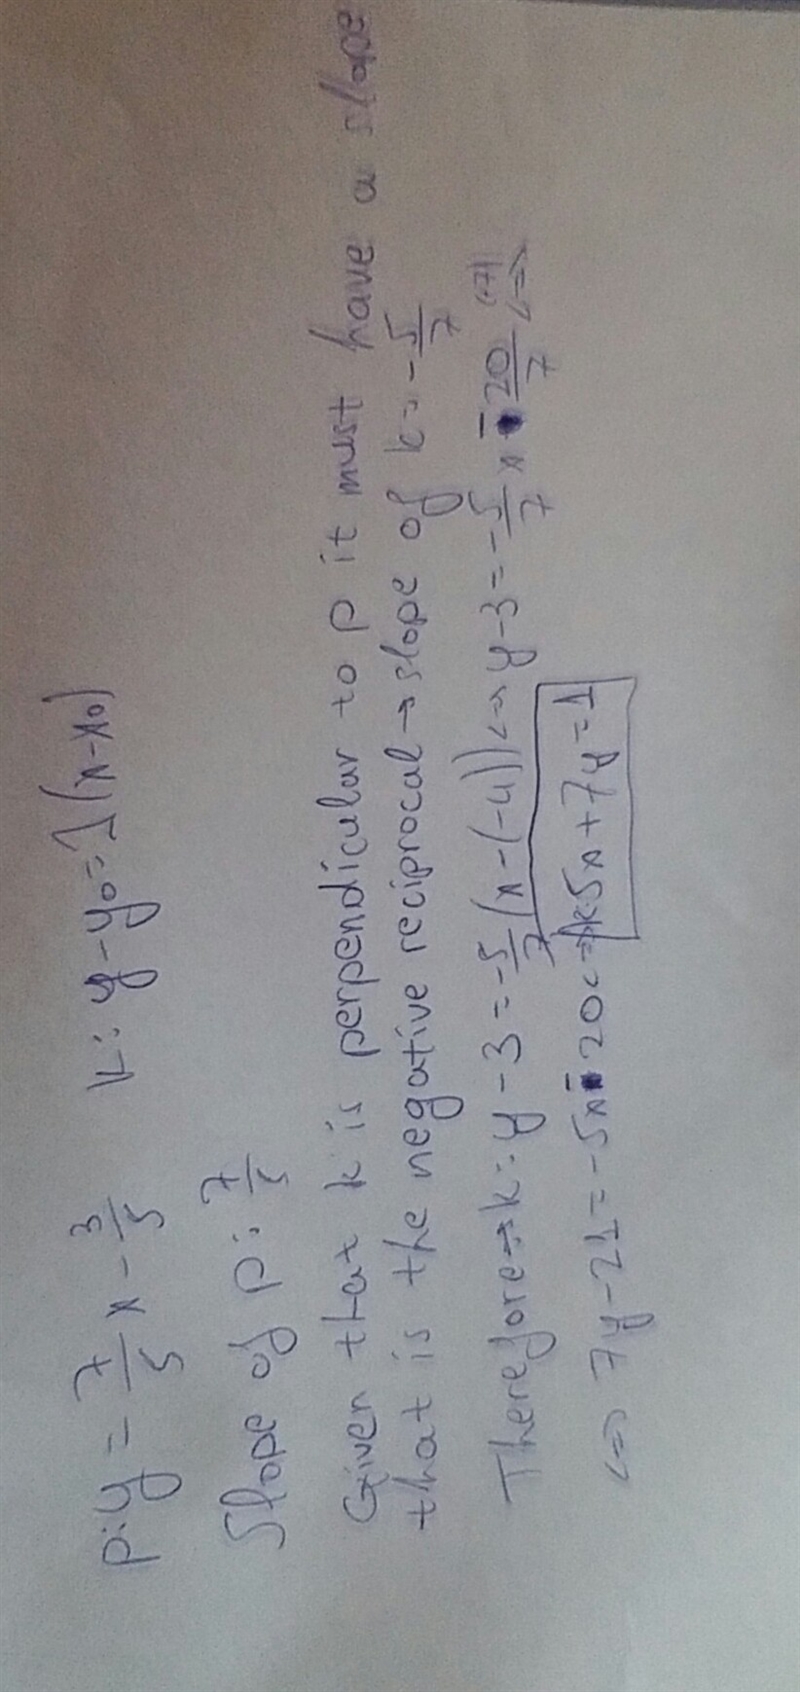 p: y = 7/5 x - 3/5   k: y - y₀ = 1 (x - x₀)
Slope of p: 7/5
Given that k is perpendicular to p it must have a slope
that is the negative reciprocal → slope of k: -5/7
Therefore → k: y - 3 = -5/7 (x - (-4)) <=> y - 3 = -5/7 x - 20/7 (·7) <=>
<=> 7y - 21 = -5x - 20 <=> k: 5x + 7y = 1